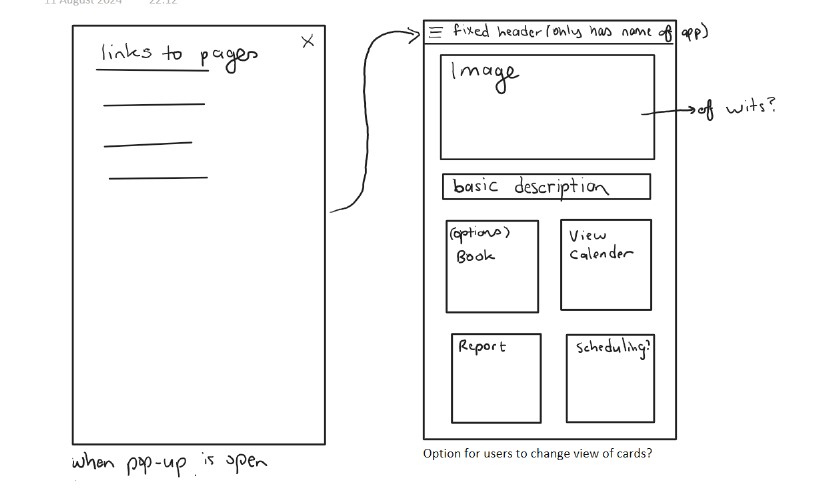 11 August 2024 22:12
links to pages
X
when pop-up is open
fixed header (only has name of app)
Image
of wits?
basic description
(options)
Book
View
Calender
Report
Scheduling?
Option for users to change view of cards?